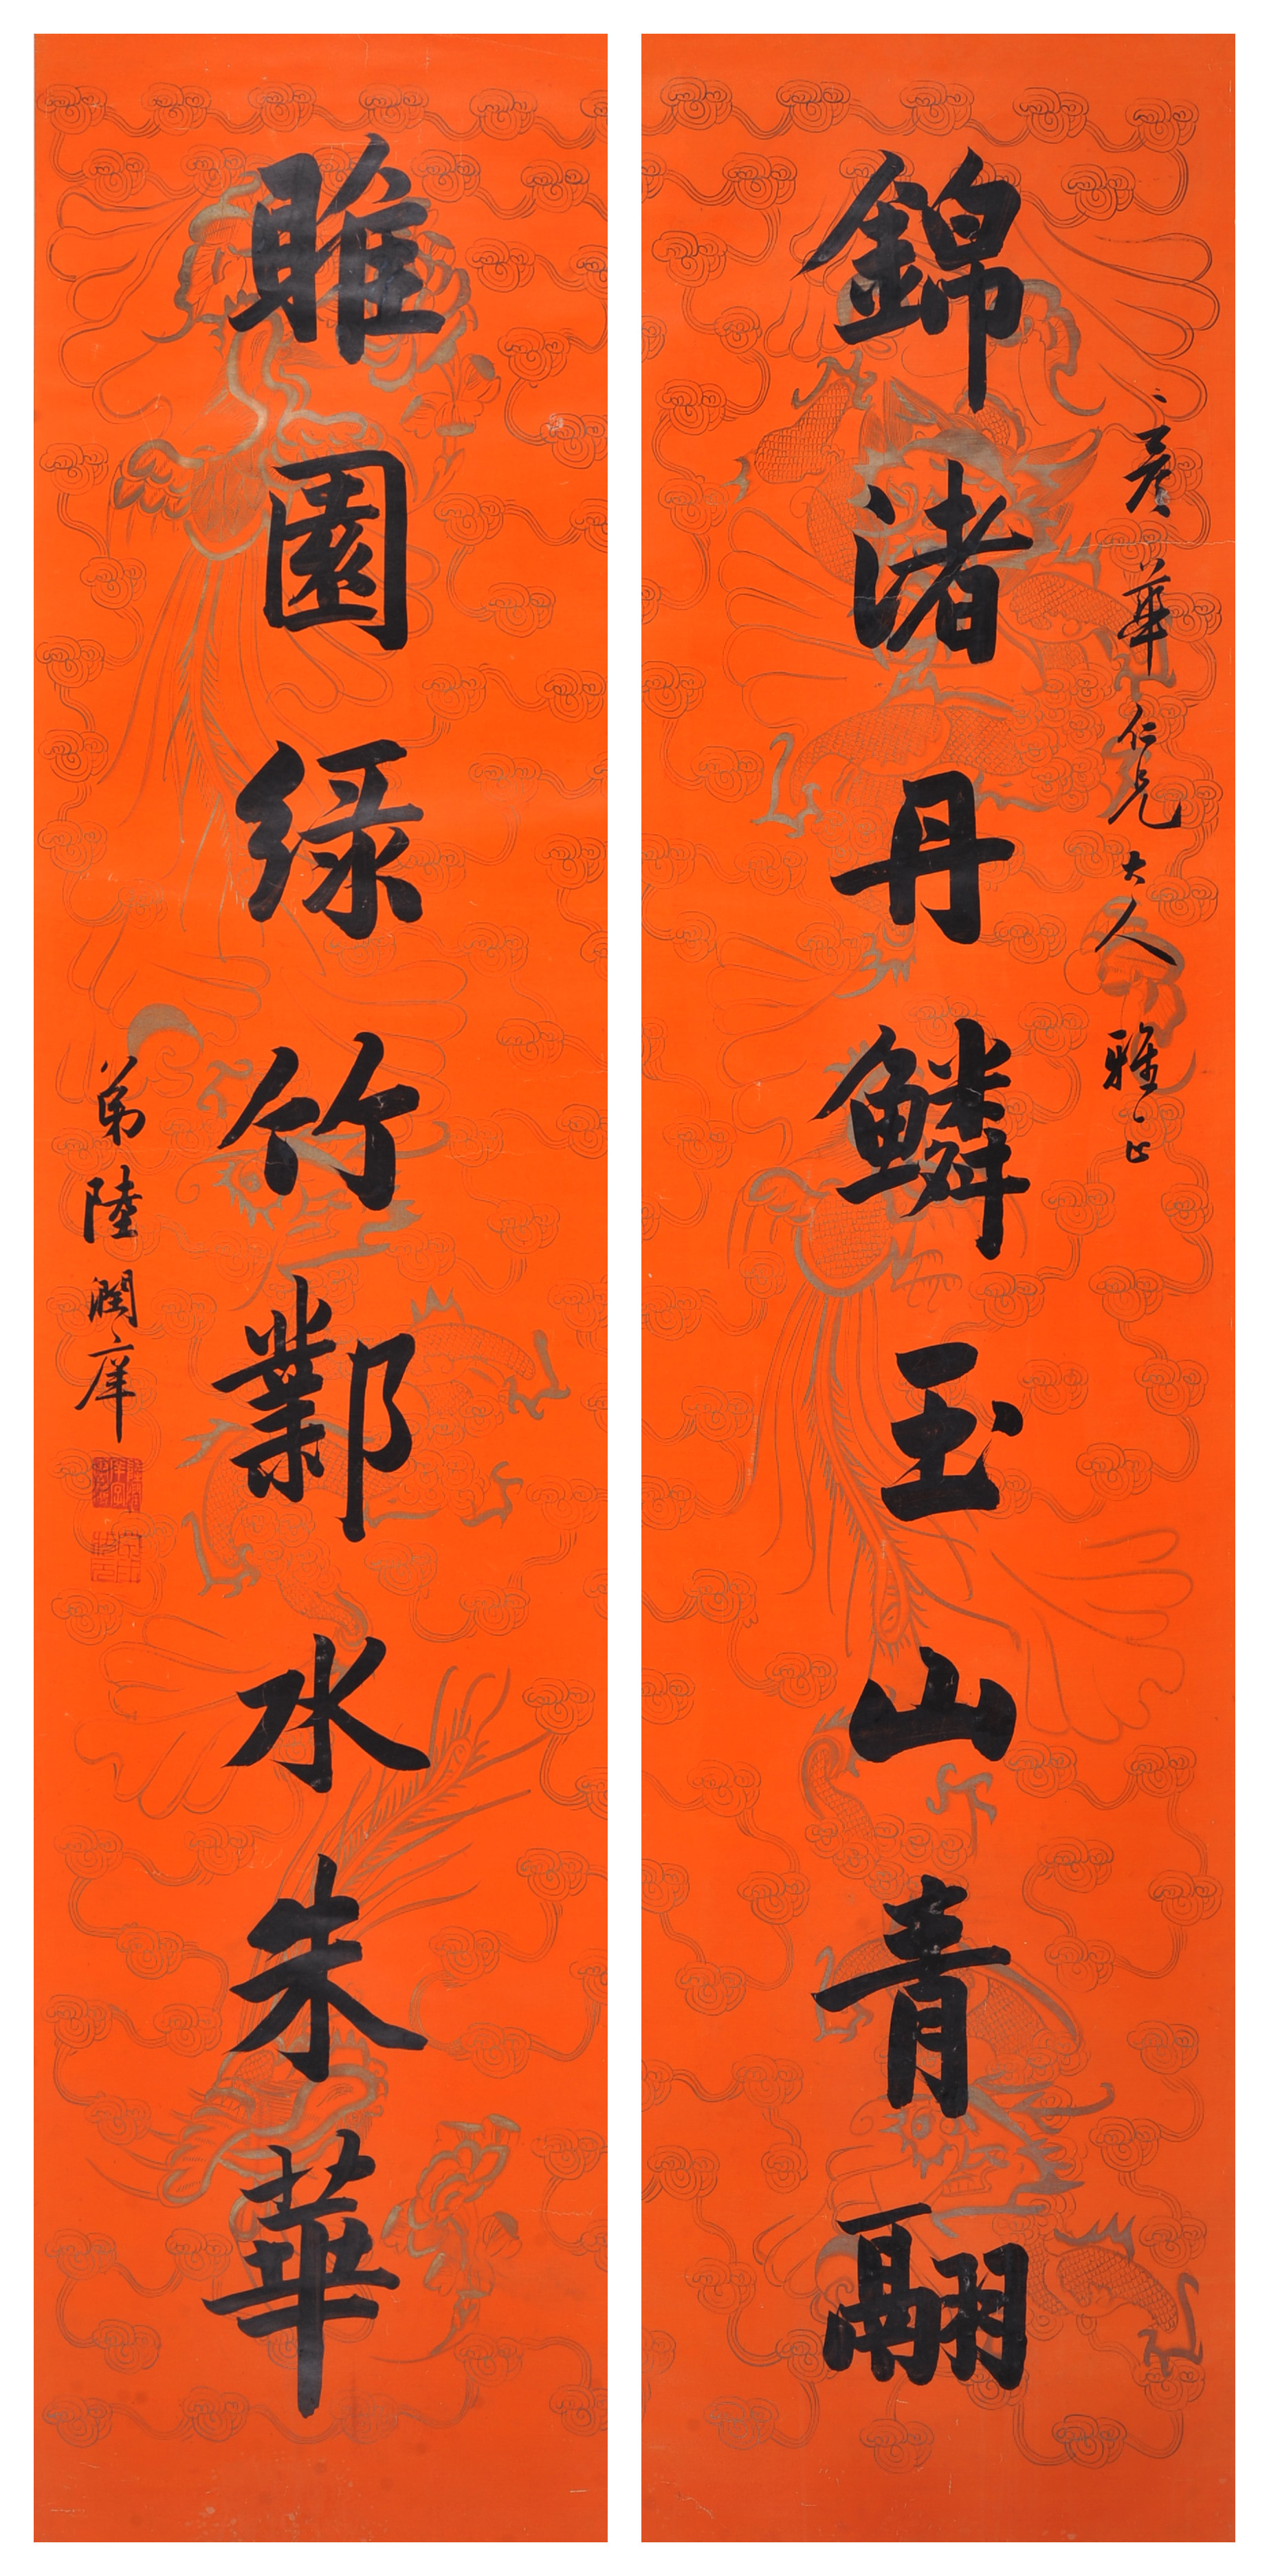 彥華仁兄大人雅正
錦渚丹鱗玉山青翮
睢園綠竹鄴水朱華
弟陸潤庠